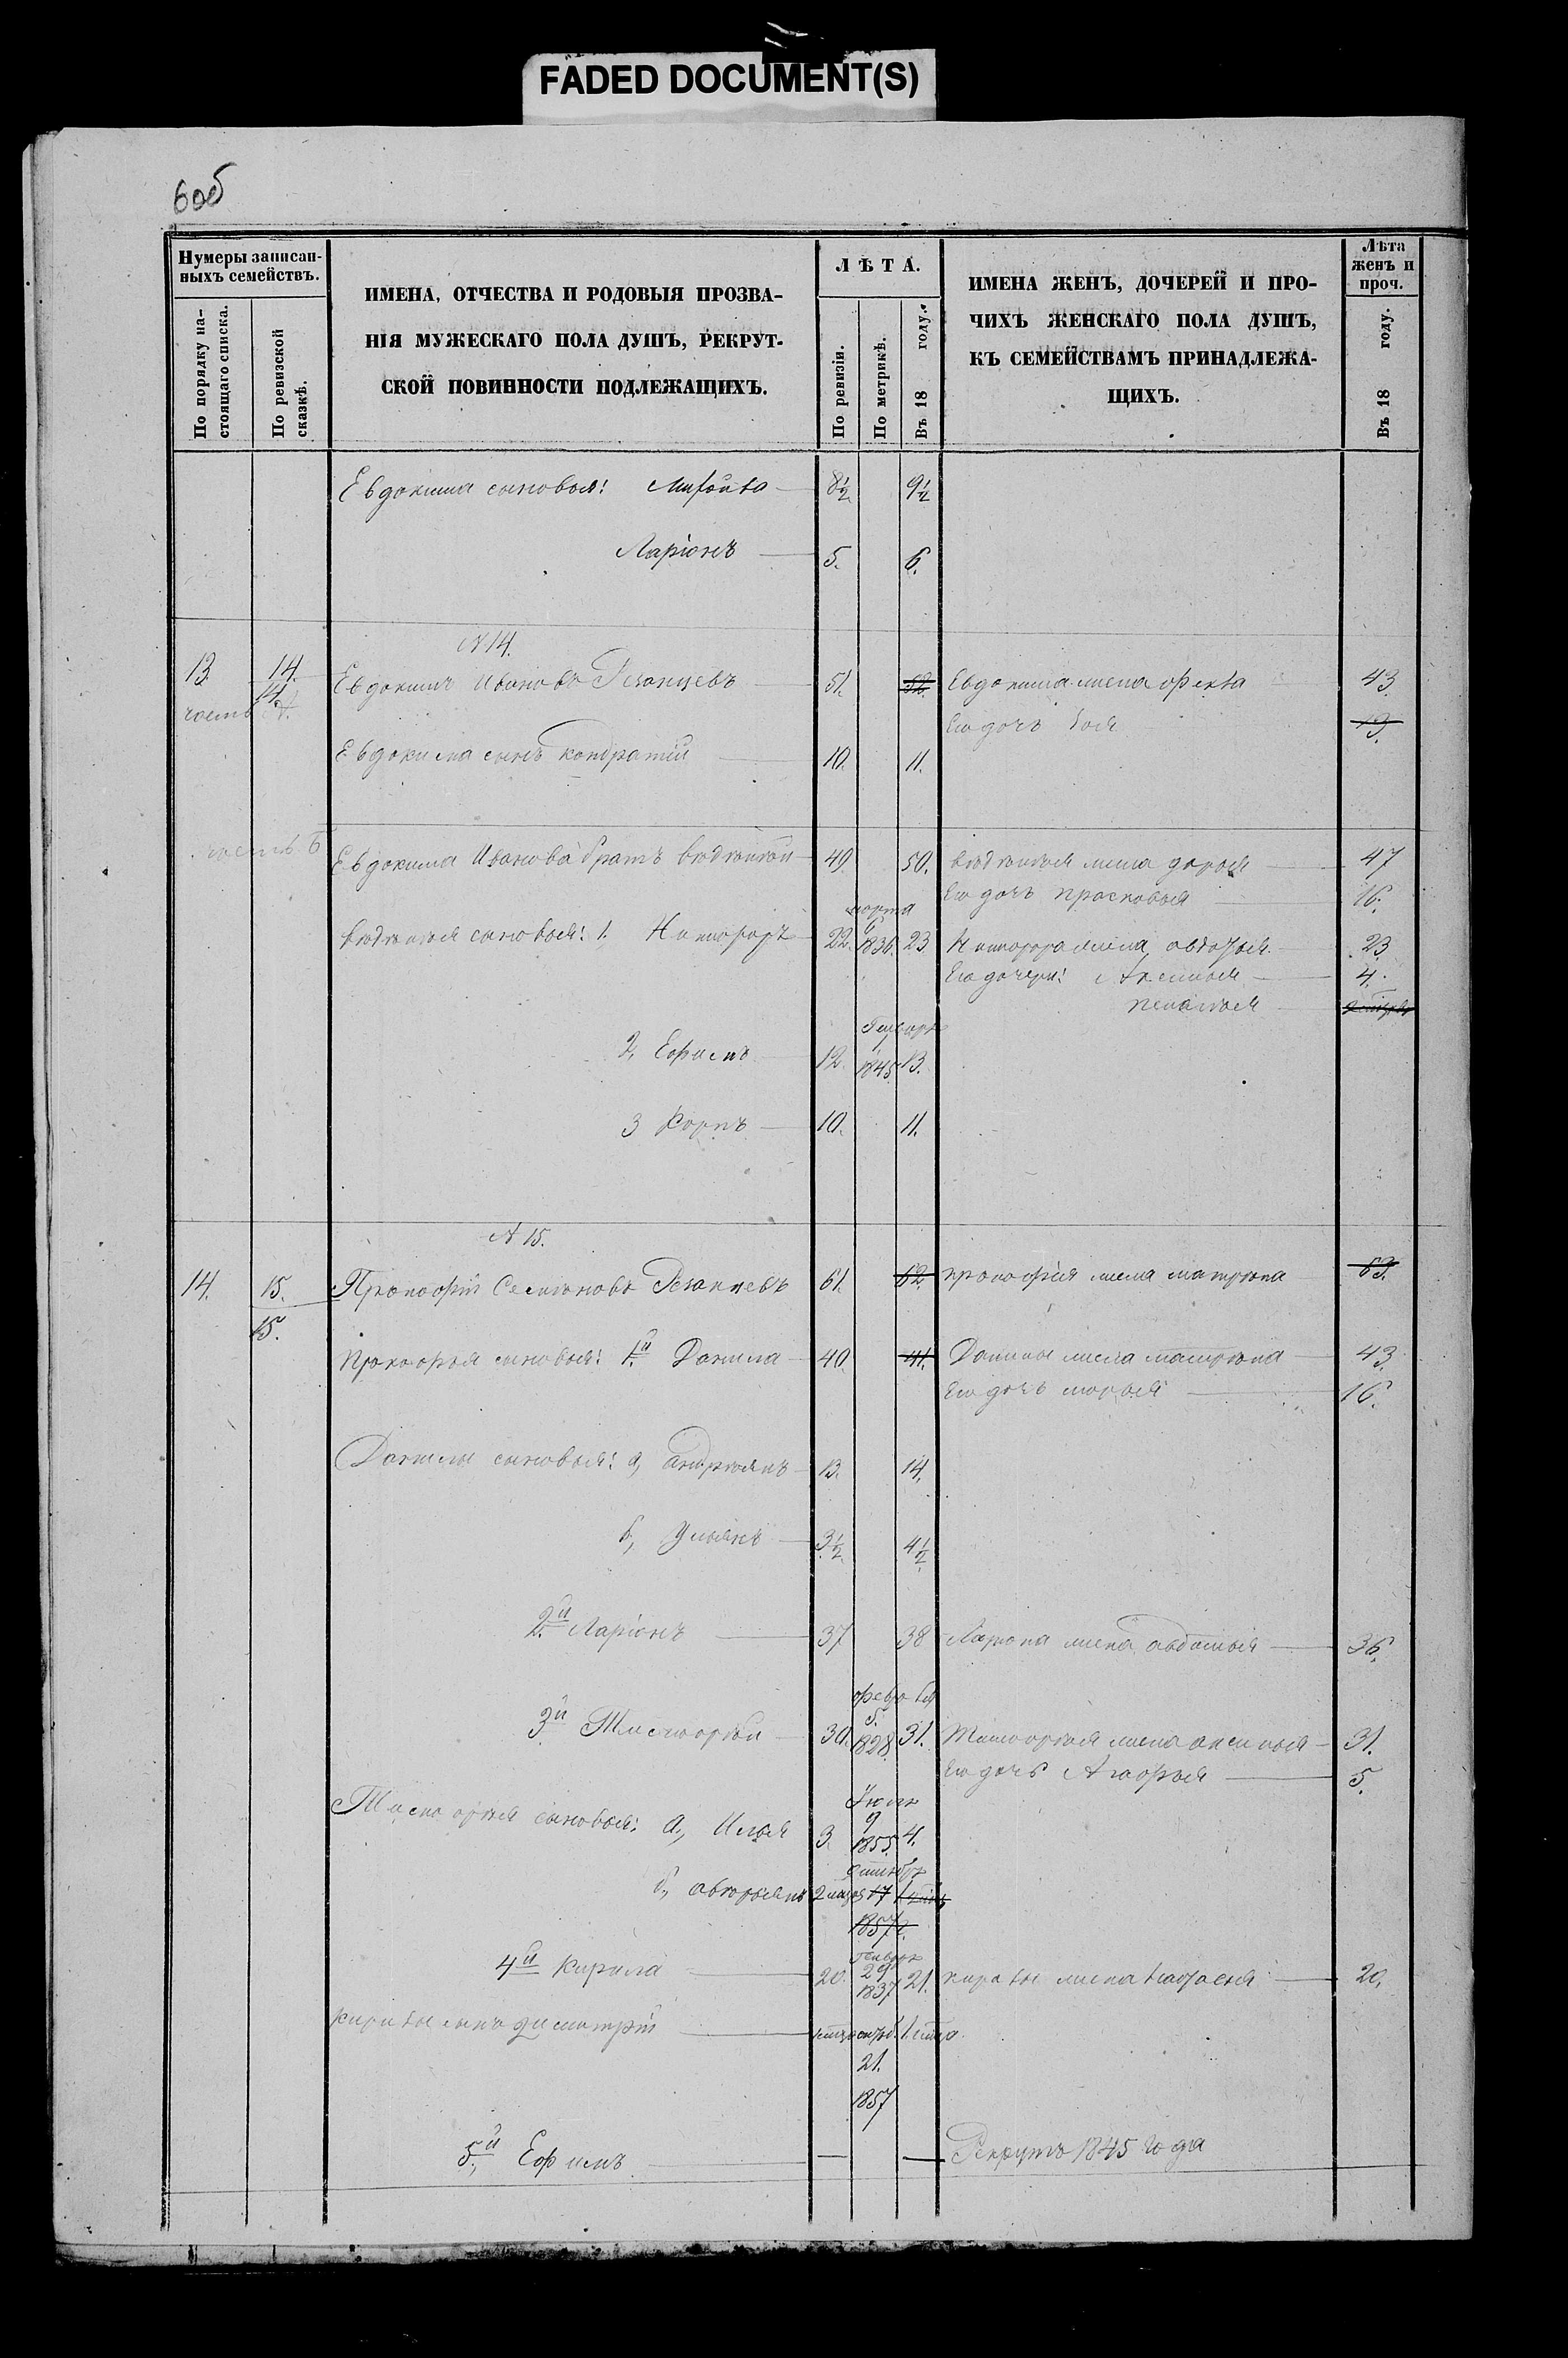 FADED DOCUMENT(S)
6об
Нумеры записан-
ныхъ семействъ.
По порядку на-
стоящаго списка.
По ревизской
сказкѣ.
ИМЕНА, ОТЧЕСТВА И РОДОВЫЯ ПРОЗВА-
НІЯ МУЖЕСКАГО ПОЛА ДУШЪ, РЕКРУТ-
СКОЙ ПОВИННОСТИ ПОДЛЕЖАЩИХЪ.
ЛѢТА.
По ревизіи.
По метрикѣ.
Въ 18 году.
ИМЕНА ЖЕНЪ, ДОЧЕРЕЙ И ПРО-
ЧИХЪ ЖЕНСКАГО ПОЛА ДУШЪ,
КЪ СЕМЕЙСТВАМЪ ПРИНАДЛЕЖА-
ЩИХЪ.
Лѣта
женъ и
проч.
Въ 18 году.
Евдокима сыновья: 8½ 9½
Ларіонъ 5. 6.
№ 14.
13. 14. Евдокимъ Ивановъ Резанцевъ 51. 52 Евдокима жена Фекла 43.
14.
часть А. Его дочь 13.
Евдокима сынъ Кондратій 10. 11.
часть Б Евдокима Иванова братъ 49. 50. жена Дарья 47
Его дочь Прасковья 16.
марта
сыновья: 1. Никифоръ 22. 1836. 23 Никифора жена 23.
Его дочери: Аксинья 4.
Пелагея
Генваря
2, Ефимъ 12. 1845 13.
3 Карпъ 10. 11.
№ 15.
14. 15. Прокофій Семионовъ Резанцевъ 61. 62. Прокофія жена Матрiона 63.
15.
Прокофья сыновья: 1й Данила 40. 41. Данилы жена Матрiона 43.
Его дочь Марья 16.
Данилы сыновья: а, Андріянъ 13. 14.
б, Ульянъ 3½ 4½
2й Ларіонъ 37 38 Лариона жена Авдотья 36.
февраля
3й Тимофей 30. 1828. 31. Тимофея жена Аксинья 31.
Его дочь Агафья 5.
Іюля
9
Тимофея сыновья: а, Илья 3. 1855. 4.
сентября
б, 17
1857 г.
генваря
4й Кирила 20. 29 1837 21. Кирилы жена Настасья 20.
Кирилы сынъ Димитрій
21.
1857
5й Ефимъ — — Рекрутъ 1845 года